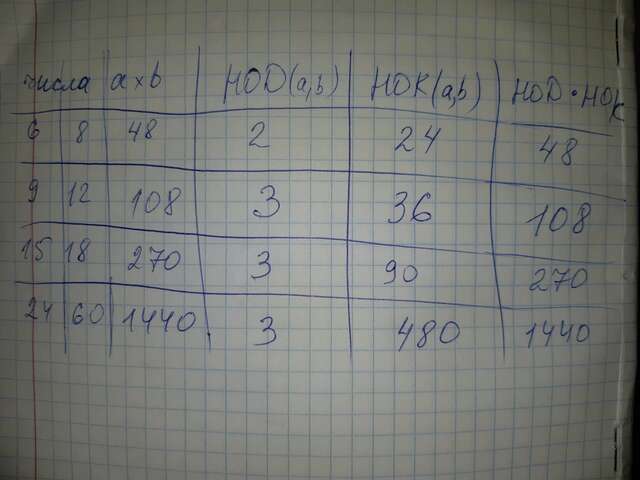 числа a x b НОD(a,b) НОК(a,b) НОD • НОК
6 8 48 2 24 48
9 12 108 3 36 108
15 18 270 3 90 270
24 60 1440 3 480 1440